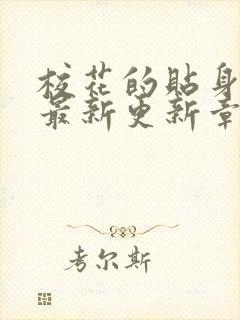 校花的贴身
最新更新章
考尔斯